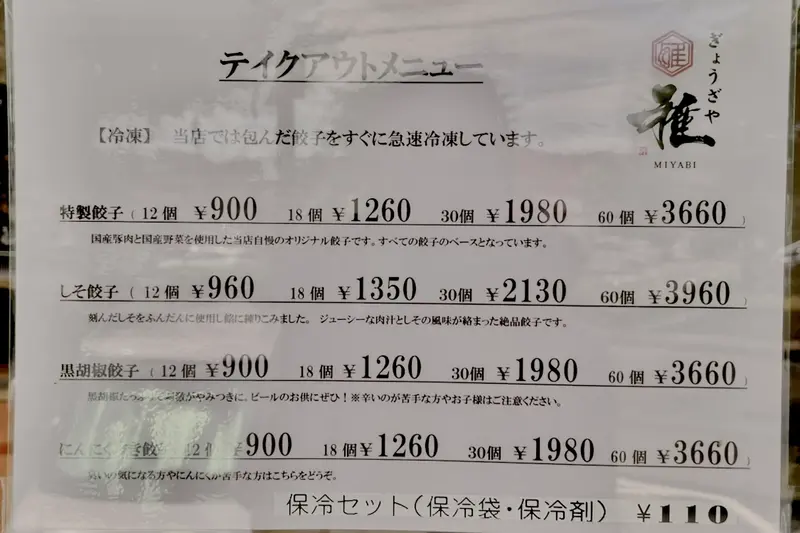 テイクアウトメニュー
ぎょうざや
雅
MIYABI
【冷凍】 当店では包んだ餃子をすぐに急速冷凍しています。
特製餃子 ( 12個 ¥900 18個 ¥1260 30個 ¥1980 60個 ¥3660 )
国産豚肉と国産野菜を使用した当店自慢のオリジナル餃子です。すべての餃子のベースとなっています。
しそ餃子 ( 12個 ¥960 18個 ¥1350 30個 ¥2130 60個 ¥3960 )
刻んだしそをふんだんに使用し餡に練りこみました。 ジューシーな肉汁としその風味が絡まった絶品餃子です。
黒胡椒餃子 ( 12個 ¥900 18個 ¥1260 30個 ¥1980 60個 ¥3660 )
黒胡椒たっぷりで がやみつきに。ビールのお供にぜひ!※辛いのが苦手な方やお子様はご注意ください。
にんにく き餃 12個 ¥900 18個 ¥1260 30個 ¥1980 60個 ¥3660 )
いの気になる方やにんにくが苦手な方はこちらをどうぞ。
保冷セット(保冷袋・保冷剤) ¥110